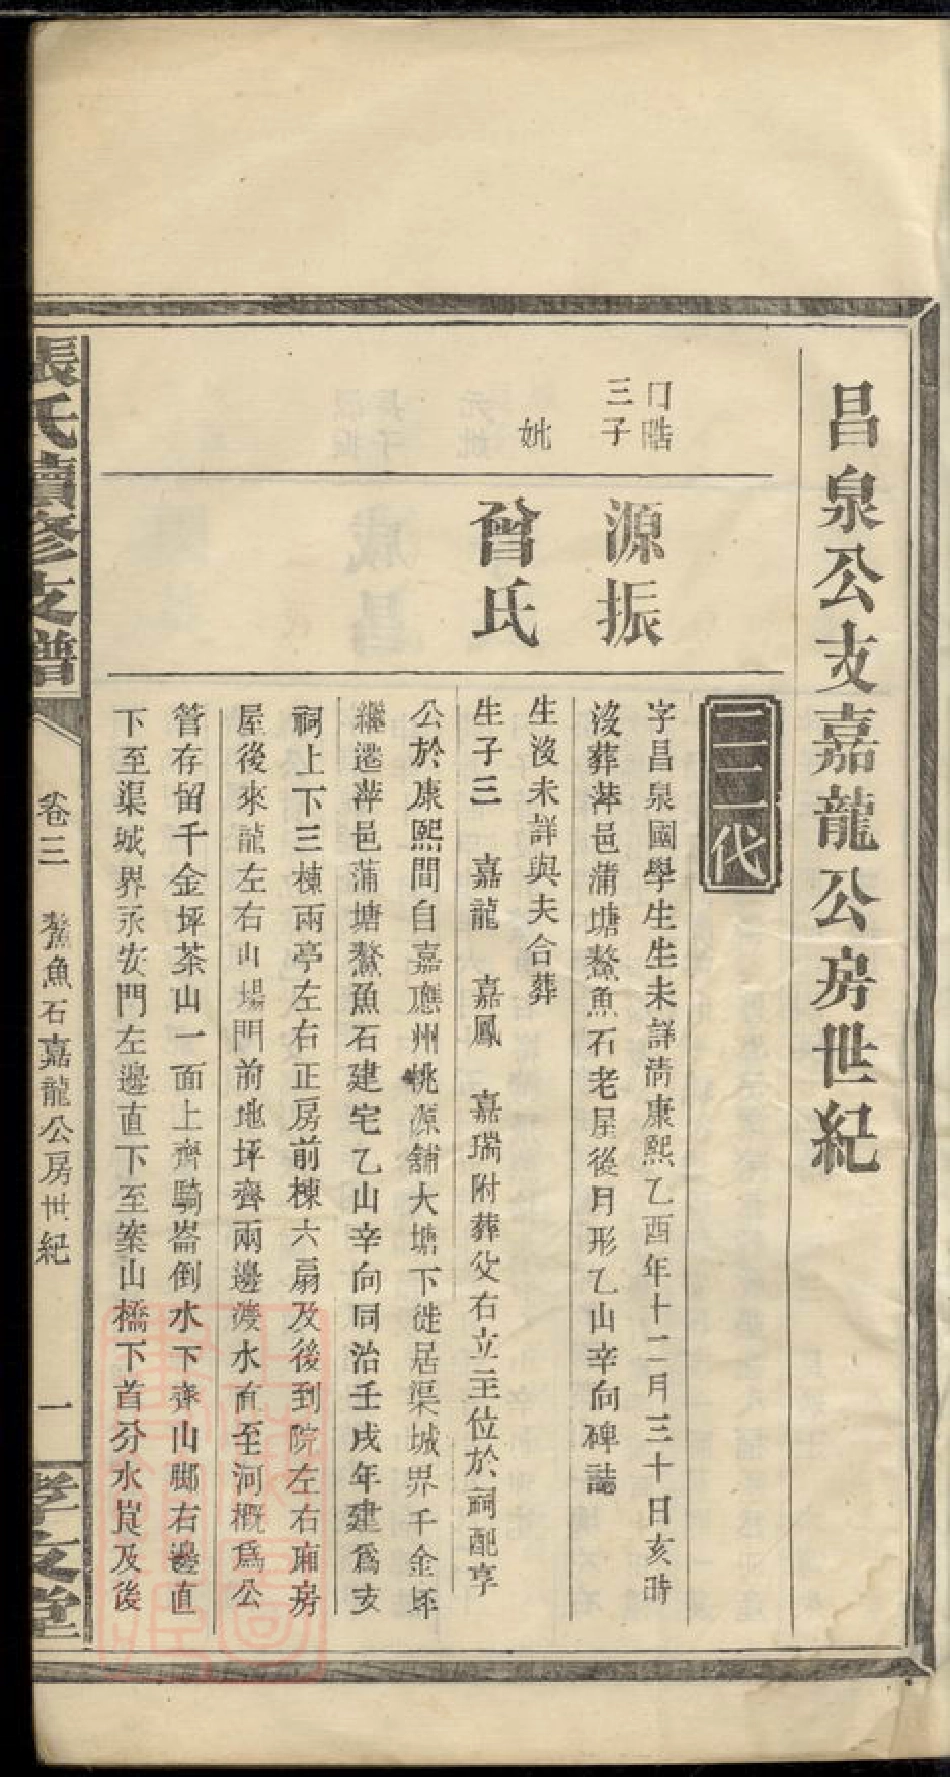 昌泉公支嘉龍公房世紀
二二代
口晧
三子
源振
字昌泉國學生生未詳清康熙乙酉年十二月三十日亥時
沒葬萍邑蒲塘鰲魚石老屋後月形乙山辛向碑誌
妣
曾氏
生沒未詳與夫合葬
生子三 嘉龍 嘉鳳 嘉瑞附葬父右立主位於祠配享
公於康熙間自嘉應州桃源舖大塘下徙居渠城界千金坪
繼遷萍邑蒲塘鰲魚石建宅乙山辛向同治壬戌年建為支
祠上下三棟兩亭左右正房前棟六扇及後到院左右廂房
屋後來龍左右山場門前地坪齊兩邊渡水直至河概為公
管存留千金坪茶山一面上齊騎崙倒水下齊山腳右邊直
下至渠城界永安門左邊直下至案山橋下首分水崀及後
張氏續修支譜
卷三
鰲魚石嘉龍公房世紀
一
孝友堂